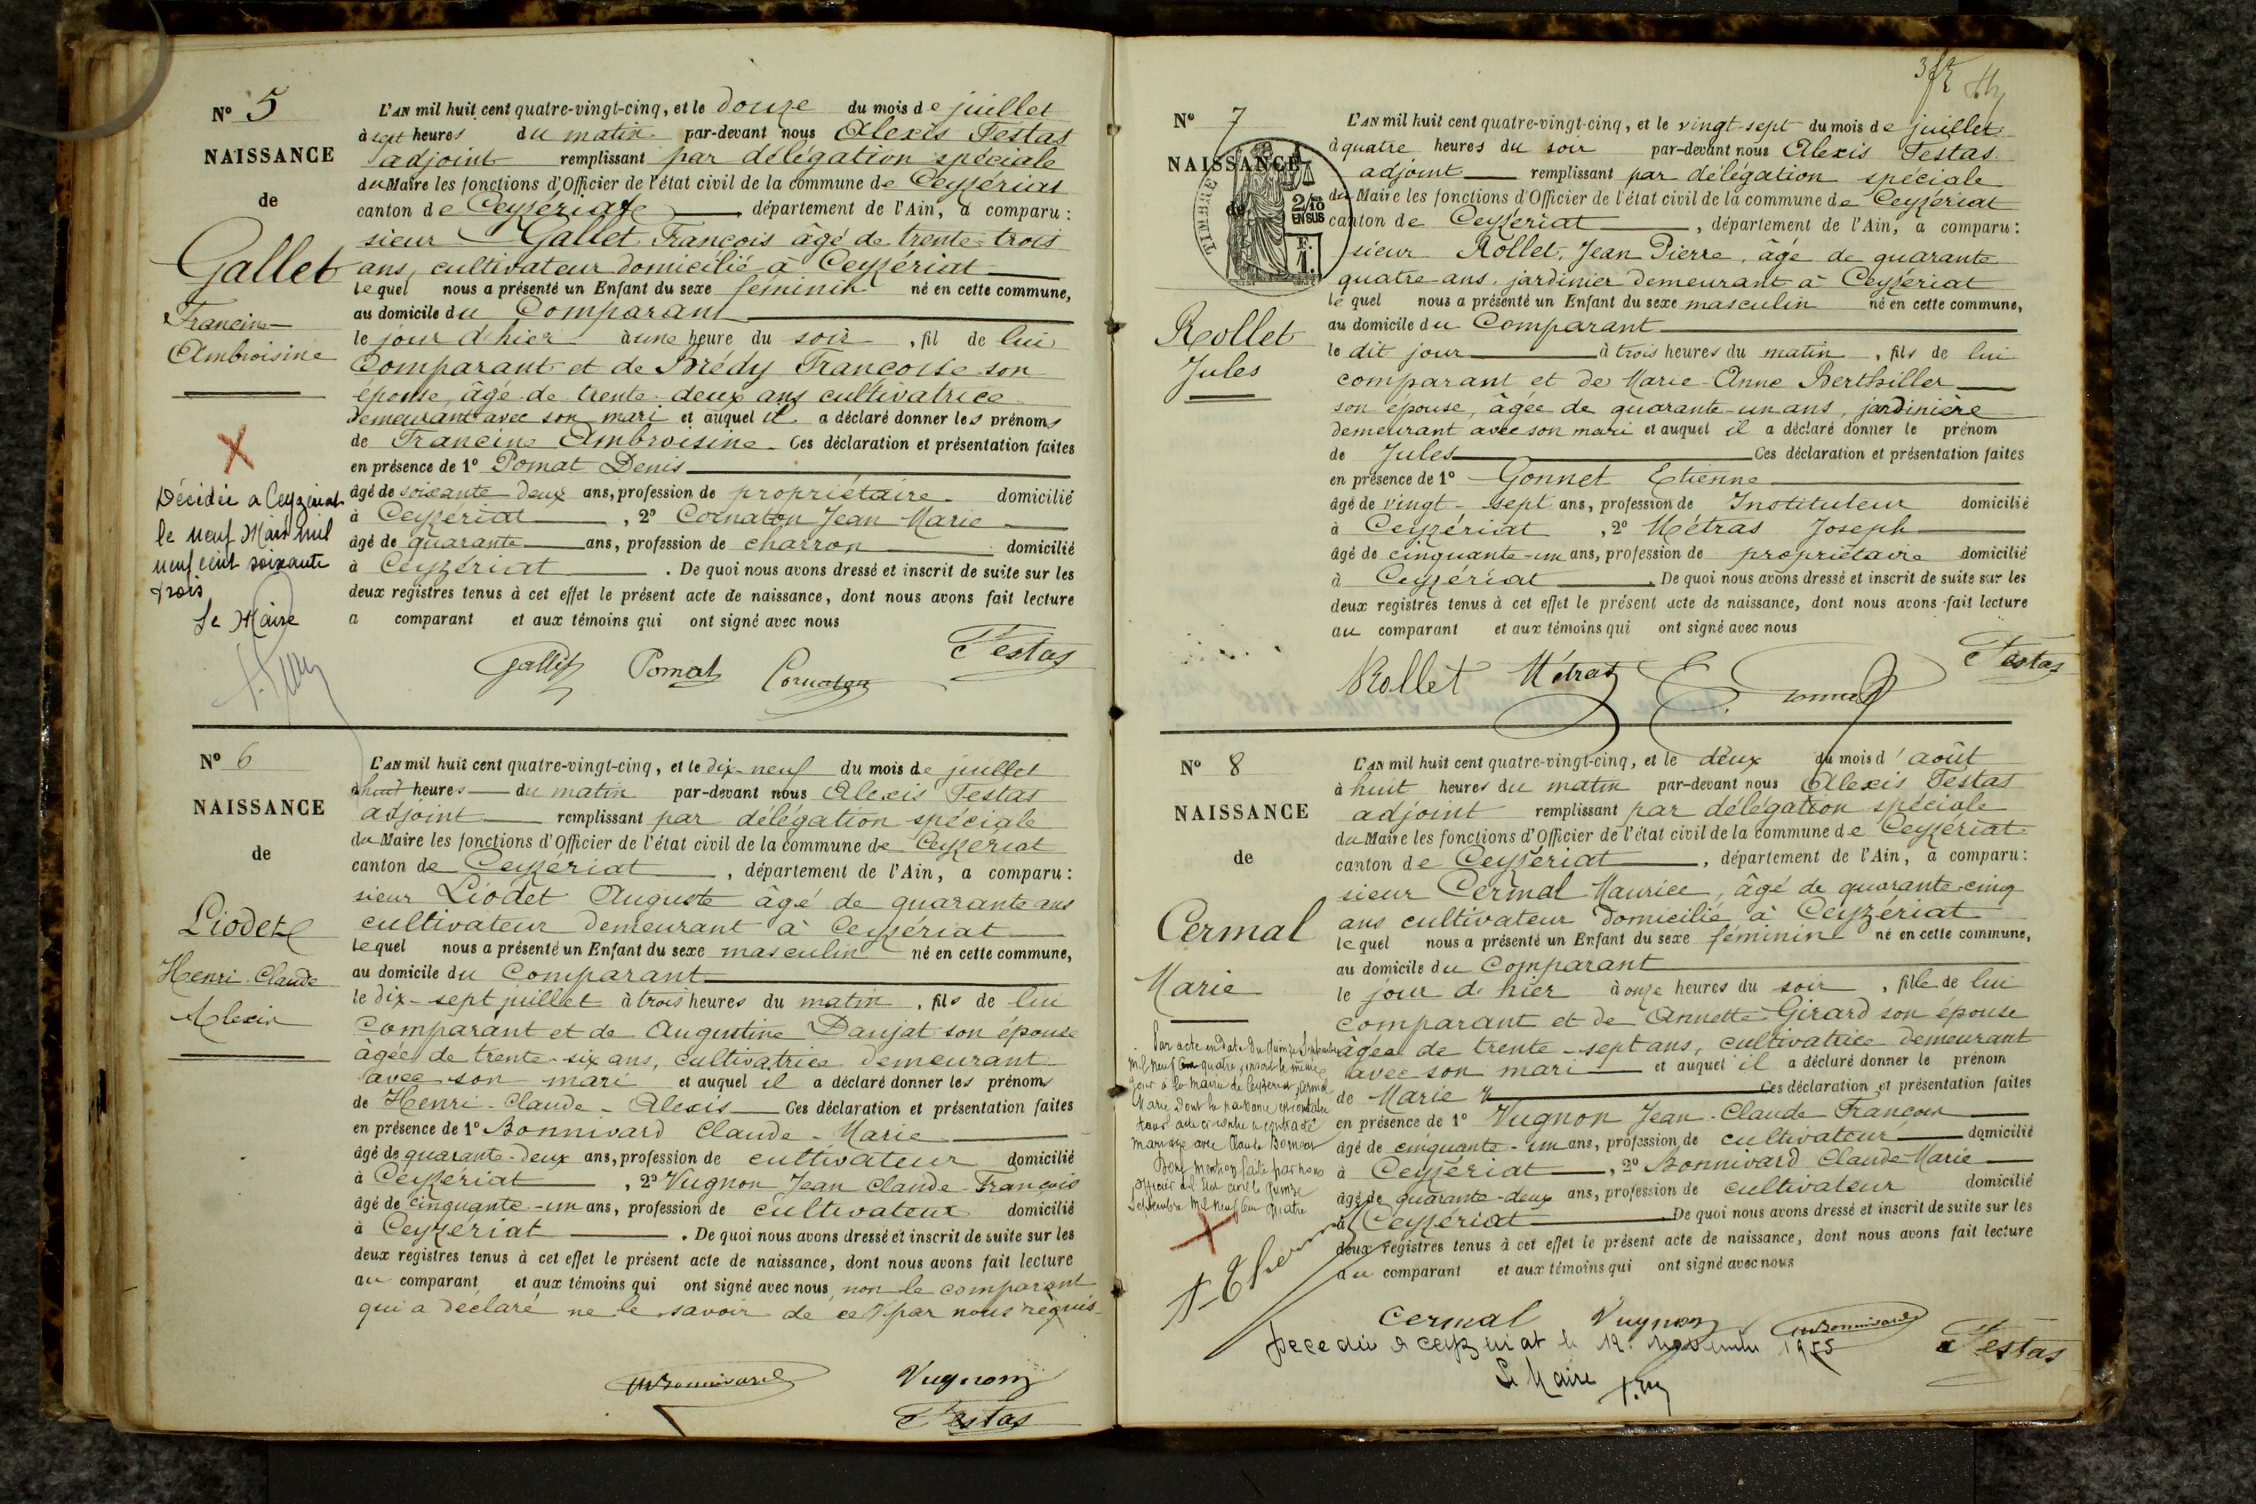 Nº 5
NAISSANCE
de
Gallet
Francine
Ambroisine
Décédée a Ceyzériat
le neuf Mars mil
neuf cent soixante
trois
Le Maire
L'AN mil huit cent quatre-vingt-cinq, et le douze du mois de juillet
à sept heures du matin par-devant nous Alexis Festas
adjoint remplissant par délégation spéciale
du Maire les fonctions d'Officier de l'état civil de la commune de Ceyzériat
canton de Ceyzériat, département de l'Ain, a comparu :
sieur Gallet François âgé de trente-trois
ans, cultivateur domicilié à Ceyzériat
lequel nous a présenté un Enfant du sexe féminin né en cette commune,
au domicile du Comparant
le jour d'hier à une heure du soir, fil de lui
Comparant et de Brédy Françoise son
épouse, âgé de trente-deux ans cultivatrice
demeurant avec son mari et auquel il a déclaré donner les prénoms
de Francine Ambroisine. Ces déclaration et présentation faites
en présence de 1º Pomat Denis
âgé de soixante deux ans, profession de propriétaire domicilié
à Ceyzériat, 2º Cornaton Jean Marie
âgé de quarante ans, profession de charron domicilié
à Ceyzériat. De quoi nous avons dressé et inscrit de suite sur les
deux registres tenus à cet effet le présent acte de naissance, dont nous avons fait lecture
a comparant et aux témoins qui ont signé avec nous
Gallet Pomat Cornaton Festas
Nº 6
NAISSANCE
de
Liodet
Henri-Claude
Alexis
L'AN mil huit cent quatre-vingt-cinq, et le dix-neuf du mois de juillet
à huit heures du matin par-devant nous Alexis Festas
adjoint remplissant par délégation spéciale
du Maire les fonctions d'Officier de l'état civil de la commune de Ceyzériat
canton de Ceyzériat, département de l'Ain, a comparu :
sieur Liodet Auguste âgé de quarante ans
cultivateur demeurant à Ceyzériat
lequel nous a présenté un Enfant du sexe masculin né en cette commune,
au domicile du Comparant
le dix-sept juillet à trois heures du matin, fils de lui
Comparant et de Augustine Daujat son épouse
âgée de trente-six ans, cultivatrice demeurant
avec son mari et auquel il a déclaré donner les prénoms
de Henri-Claude-Alexis Ces déclaration et présentation faites
en présence de 1º Bonnivard Claude-Marie
âgé de quarante-deux ans, profession de cultivateur domicilié
à Ceyzériat, 2º Vugnon Jean Claude-François
âgé de cinquante-un ans, profession de cultivateur domicilié
à Ceyzériat. De quoi nous avons dressé et inscrit de suite sur les
deux registres tenus à cet effet le présent acte de naissance, dont nous avons fait lecture
au comparant et aux témoins qui ont signé avec nous, non le comparant
qui a déclaré ne le savoir de ce par nous requis
Bonnivard Vugnon
Festas
3
Nº 7
NAISSANCE
de
TIMBRE
2/10
EN SUS
F.
1.
Rollet
Jules
L'AN mil huit cent quatre-vingt-cinq, et le vingt-sept du mois de juillet
à quatre heures du soir par-devant nous Alexis Festas
adjoint remplissant par délégation spéciale
du Maire les fonctions d'Officier de l'état civil de la commune de Ceyzériat
canton de Ceyzériat, département de l'Ain, a comparu :
sieur Rollet, Jean Pierre, âgé de quarante
quatre ans, jardinier demeurant à Ceyzériat
lequel nous a présenté un Enfant du sexe masculin né en cette commune,
au domicile du Comparant
le dit jour à trois heures du matin, fils de lui
comparant et de Marie-Anne Berthiller
son épouse, âgée de quarante-un ans, jardinière
demeurant avec son mari et auquel il a déclaré donner le prénom
de Jules Ces déclaration et présentation faites
en présence de 1º Gonnet Etienne
âgé de vingt-sept ans, profession de Instituteur domicilié
à Ceyzériat, 2º Métras Joseph
âgé de cinquante-un ans, profession de propriétaire domicilié
à Ceyzériat. De quoi nous avons dressé et inscrit de suite sur les
deux registres tenus à cet effet le présent acte de naissance, dont nous avons fait lecture
au comparant et aux témoins qui ont signé avec nous
Rollet Métras E. Gonnet Festas
Nº 8
NAISSANCE
de
Cermal
Marie
Par acte en date du quinze Septembre
mil neuf cent quatre, inscrit le même
jour à la mairie de Ceyzériat, Cermal
Marie dont la naissance est constatée
dans acte ci contre a contracté
mariage avec Claude
Dont mention faite par nous
officier de l'état civil le quinze
Septembre mil neuf cent quatre
L'AN mil huit cent quatre-vingt-cinq, et le deux du mois d'août
à huit heures du matin par-devant nous Alexis Festas
adjoint remplissant par délégation spéciale
du Maire les fonctions d'Officier de l'état civil de la commune de Ceyzériat
canton de Ceyzériat, département de l'Ain, a comparu :
sieur Cermal Maurice, âgé de quarante-cinq
ans cultivateur domicilié à Ceyzériat
lequel nous a présenté un Enfant du sexe féminin né en cette commune,
au domicile du Comparant
le jour d'hier à onze heures du soir, fille de lui
comparant et de Annette Girard son épouse
âgée de trente-sept ans, cultivatrice demeurant
avec son mari et auquel il a déclaré donner le prénom
de Marie Ces déclaration et présentation faites
en présence de 1º Vugnon Jean-Claude François
âgé de cinquante-un ans, profession de cultivateur domicilié
à Ceyzériat, 2º Bonnivard Claude Marie
âgé de quarante-deux ans, profession de cultivateur domicilié
à Ceyzériat De quoi nous avons dressé et inscrit de suite sur les
deux registres tenus à cet effet le présent acte de naissance, dont nous avons fait lecture
au comparant et aux témoins qui ont signé avec nous
Cermal Vugnon Bonnivard Festas
Décédée à Ceyzériat le 12 Novembre 1955
Le Maire